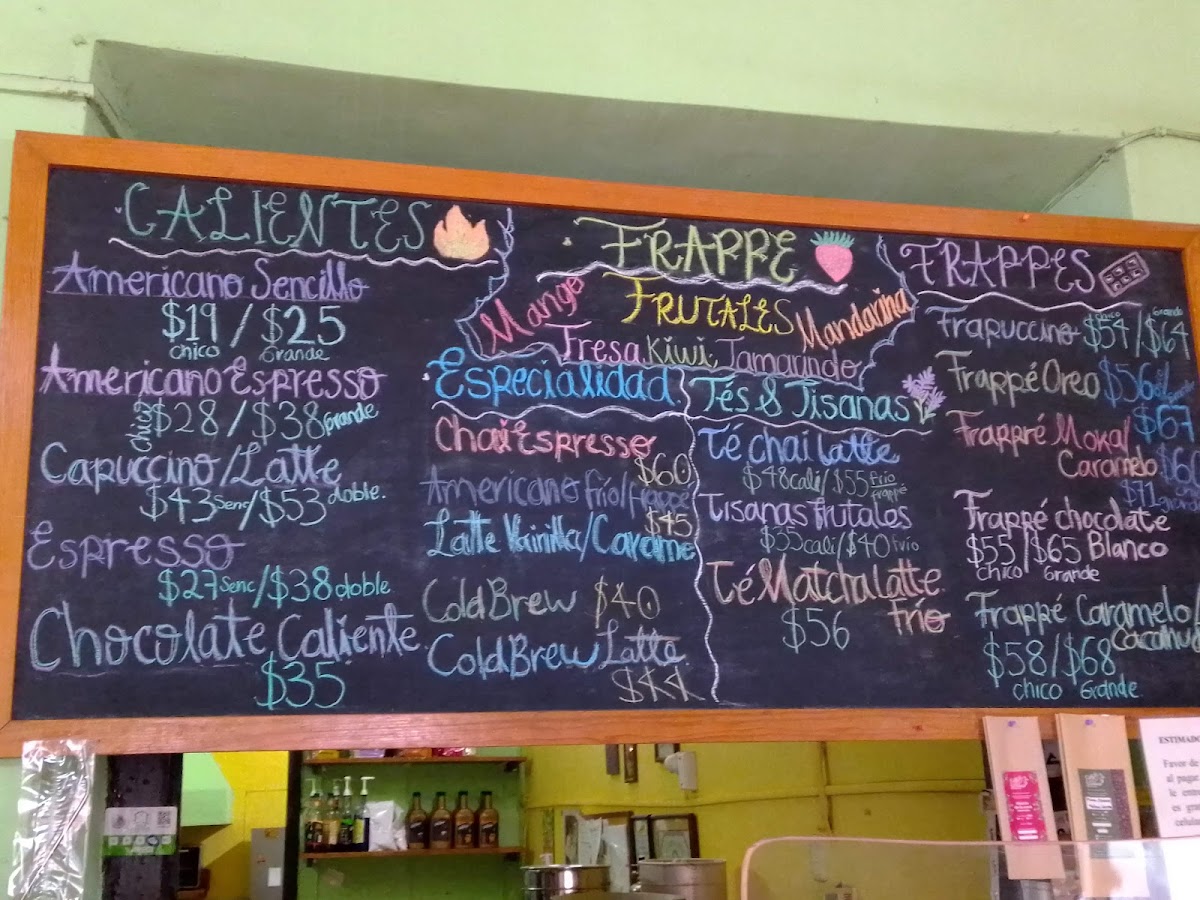 CALIENTES
Americano Sencillo
$19 / $25
chico Grande
Americano Espresso
chico $28 / $38 Grande
Capuccino/Latte
$43 Senc/$53 doble.
Espresso
$27 Senc/$38 doble
Chocolate Caliente
$35
FRAPPE
FRUTALES
Mango
Mandarina
Fresa, Kiwi, Tamarindo
Especialidad
Chai Espresso
$60
Americano frío/frappé
$45
Latte Vainilla/Carame
Cold Brew $40
Cold Brew Latte
$44
Tés & Tisanas
Té chai latte
$48 cali/$55 frío
frappé
Tisanas frutales
$35 cali/$40 frío
Té Matcha Latte
frío
$56
FRAPPES
Frapuccino $54/$64
chico Grande
Frappé Oreo $56
$67
Frappré Moka/
Caramelo
$71
Frappé chocolate
$55/$65 Blanco
chico Grande
Frappé Caramelo
$58/$68
chico Grande
ESTIMADO
Favor de